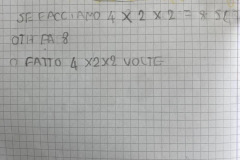 SE FACCIAMO 4 X 2 X 2 =
FA 8
O FATTO 4 X2X2 VOLTE